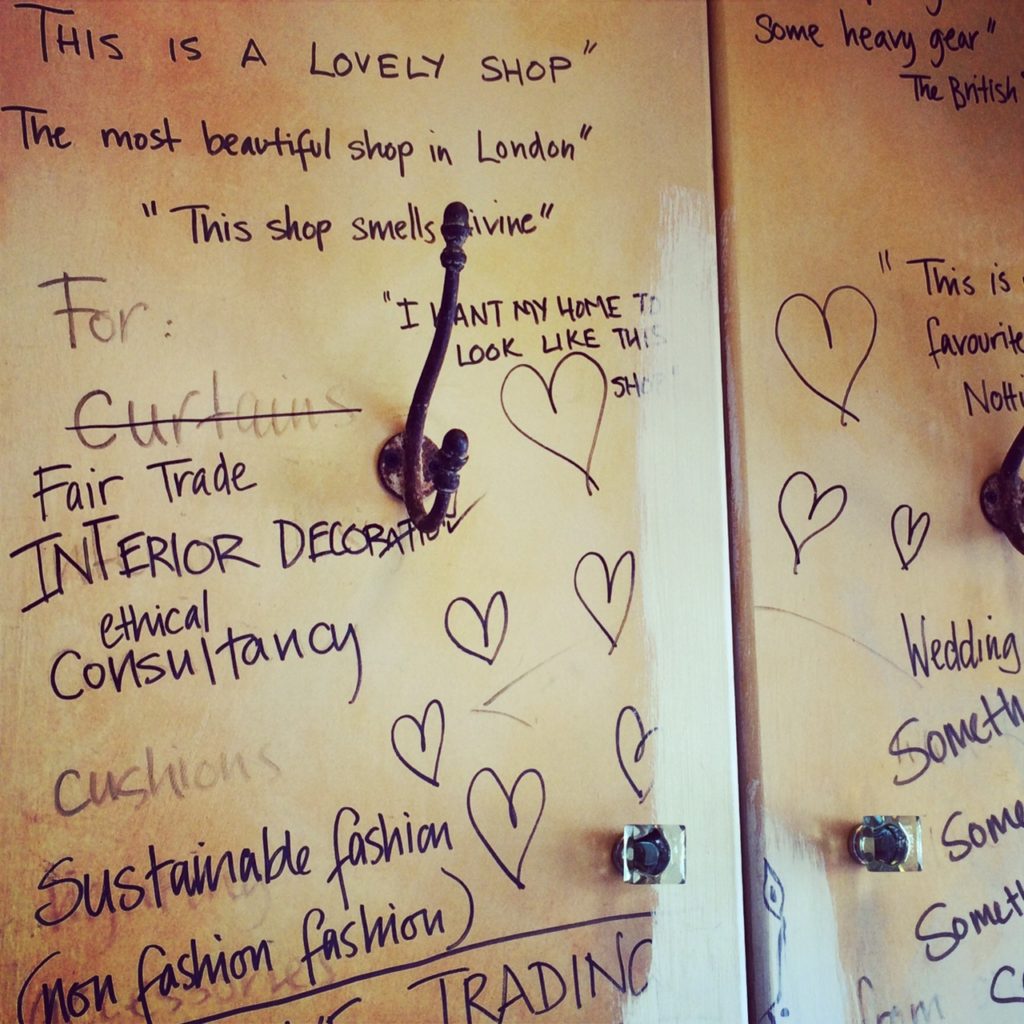 THIS IS A LOVELY SHOP"
The most beautiful shop in London"
"This shop smells divine"
For:
"I WANT MY HOME TO
LOOK LIKE THIS
SHOP"
Curtains
Fair Trade
INTERIOR DECORATION
ethical
Consultancy
cushions
Sustainable fashion
(non fashion fashion)
TRADING
Some heavy gear"
The British
"This is
favourite
Notti
Wedding
Someth
Some
Someth
from